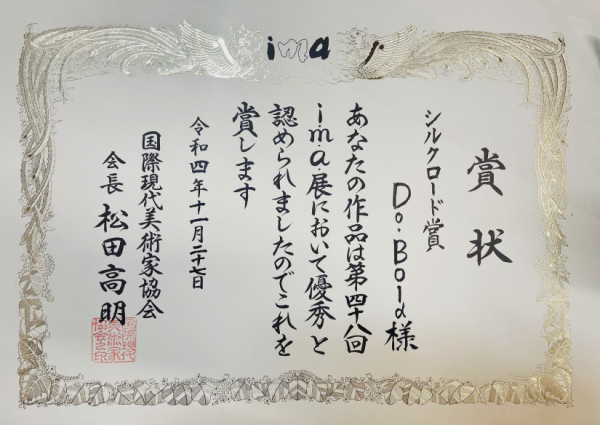 ima
賞状
シルクロード賞
Do.Bold様
あなたの作品は第四十八回
i・m・a・展において優秀と
認められましたのでこれを
賞します
令和四年十一月二十七日
国際現代美術家協会
会長 松田高明